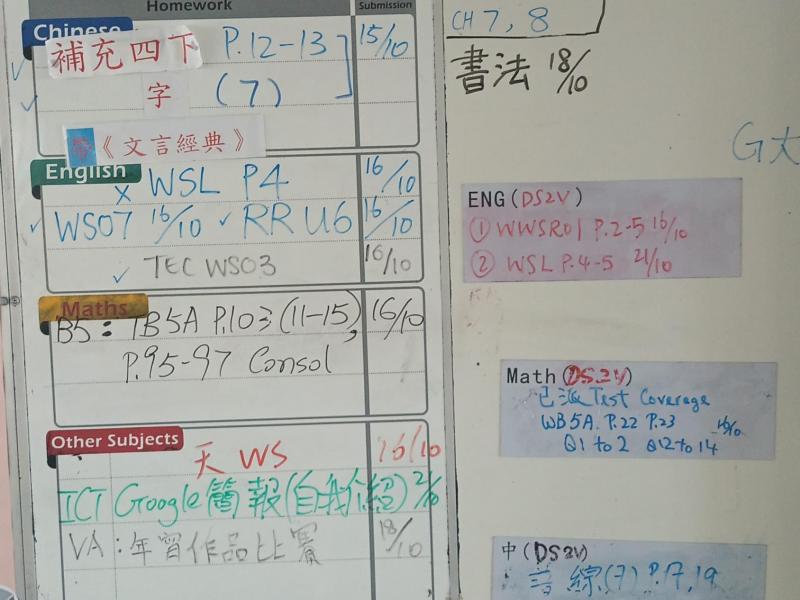 Homework
Submission
Chinese
補充四下 P.12-13 15/10
字 (7)
帶《文言經典》
English
x WSL P4 16/10
WS07 16/10 ✓ RR U6 16/10
TEC WS03 16/10
Maths
B5: TB5A P.103 (11-15), 16/10
P.95-97 Consol
Other Subjects
天 WS 16/10
ICT Google簡報(自我介紹) 2/10
VA:年宵作品比賽 18/10
CH 7, 8
書法 18/10
G大
ENG (DS2V)
① WWSR01 P.2-5 16/10
② WSL P.4-5 21/10
Math (DS2V)
已派 Test Coverage
WB5A P.22 P.23 16/10
Q1 to 2 Q12 to 14
中 (DS2V)
綜(7) P.17,19